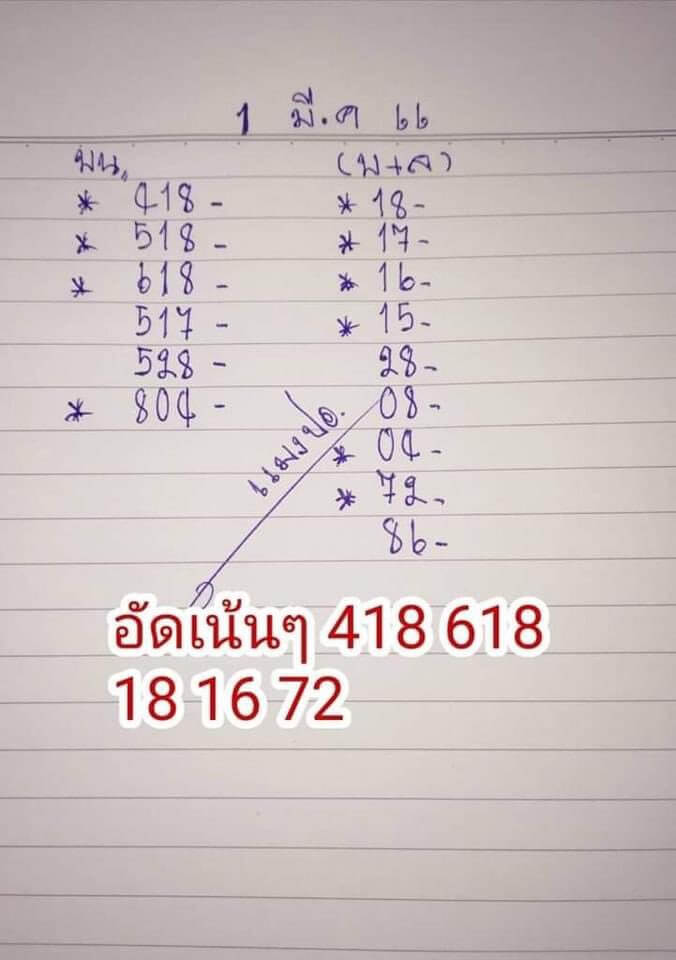 1 มี.ค 66
บน. (บ+ล)
* 418 - * 18-
* 518 - * 17-
* 618 - * 16-
517 - * 15-
528 - 28-
* 804 - 08-
* 04-
* 72-
86-
แมงปอ.
อัดเน้นๆ 418 618
18 16 72